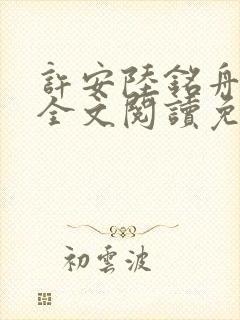 許安陸銘舟
全文閱讀免
初雲波